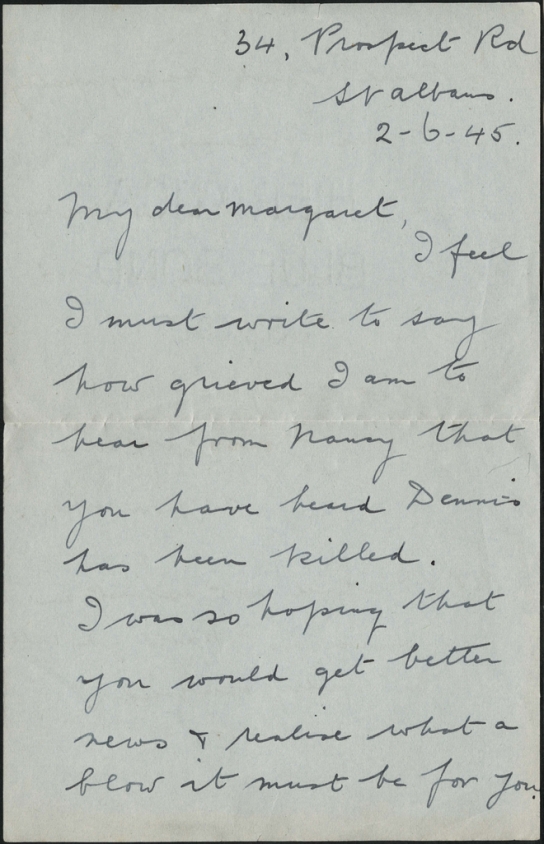 34, Prospect Rd
St Albans.
2-6-45.
My dear Margaret,
I feel
I must write to say
how grieved I am to
hear from Nancy that
you have heard Dennis
has been killed.
I was so hoping that
you would get better
news & realise what a
blow it must be for you.